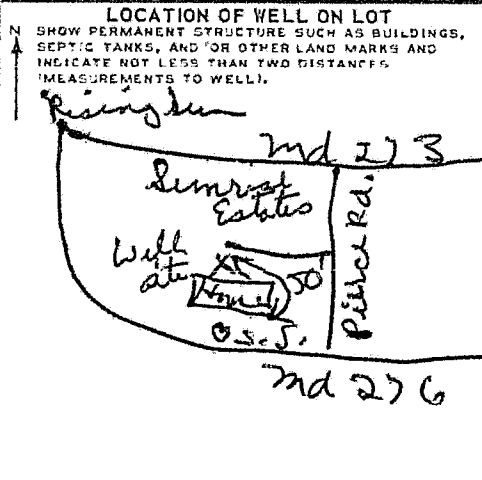 LOCATION OF WELL ON LOT
N SHOW PERMANENT STRUCTURE SUCH AS BUILDINGS,
SEPTIC TANKS, AND/OR OTHER LAND MARKS AND
INDICATE NOT LESS THAN TWO DISTANCES
(MEASUREMENTS TO WELL).
Rising Sun
Md 273
Sunrise
Estates
Pierce Rd.
Well
site
50'
Home
Md 276